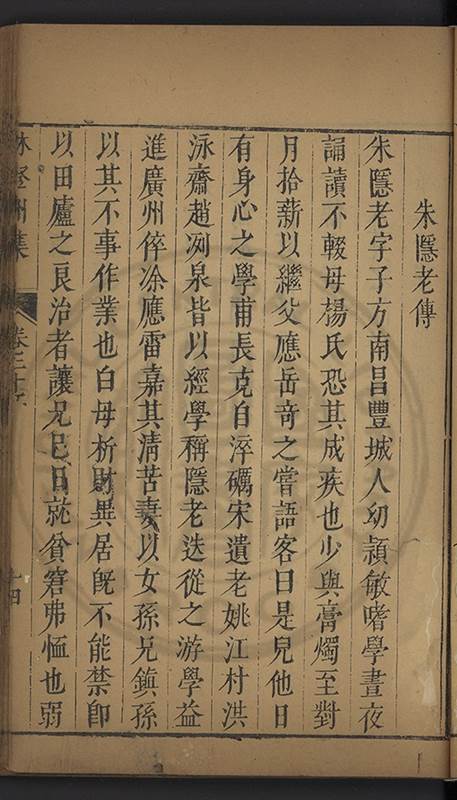 朱隱老傳
朱隱老字子方南昌豐城人幼頴敏嗜學晝夜
誦讀不輟母楊氏恐其成疾也少與膏燭至對
月拾薪以繼父應岳奇之嘗語客曰是兒他日
有身心之學甫長克自淬礪宋遺老姚江村洪
泳齋趙冽泉皆以經學稱隱老迭從之游學益
進廣州倅凃應雷嘉其清苦妻以女孫兄鎮孫
以其不事作業也白母析財異居旣不能禁卽
以田廬之良治者讓兄巳日就貧窘弗恤也弱
林登州集
卷二十
十四